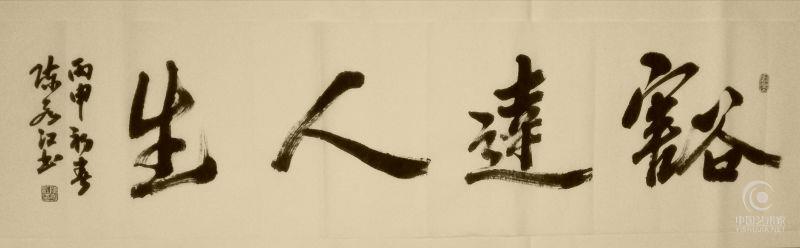 豁達人生
丙申初春
陈永江书
中国书法家
YISHUJIA.NET